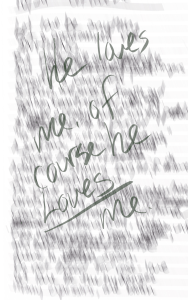 he loves
me. of
course he
Loves
me.